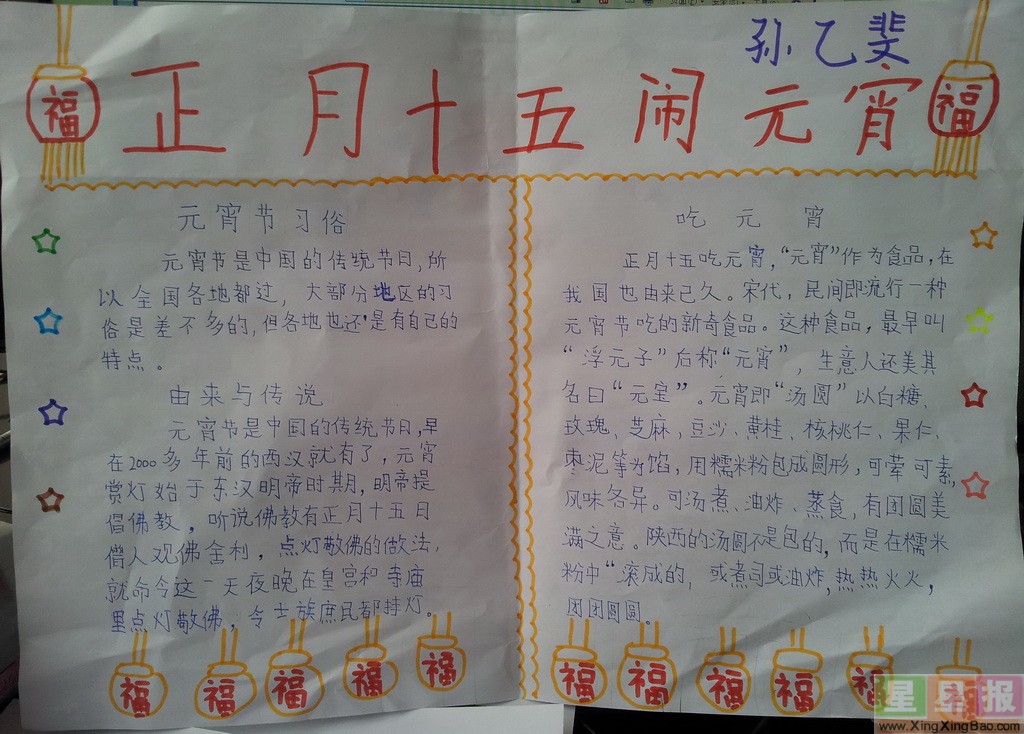 孙乙斐
福
正月十五闹元宵
福
元宵节习俗
元宵节是中国的传统节日,所
以全国各地都过,大部分地区的习
俗是差不多的,但各地也还是有自己的
特点。
由来与传说
元宵节是中国的传统节日,早
在2000多年前的西汉就有了,元宵
赏灯始于东汉明帝时期,明帝提
倡佛教,听说佛教有正月十五日
僧人观佛舍利,点灯敬佛的做法,
就命令这一天夜晚在皇宫和寺庙
里点灯敬佛,令士族庶民都挂灯。
吃元宵
正月十五吃元宵,“元宵”作为食品,在
我国也由来已久。宋代,民间即流行一种
元宵节吃的新奇食品。这种食品,最早叫
“浮元子”后称“元宵”,生意人还美其
名曰“元宝”。元宵即“汤圆”以白糖、
玫瑰、芝麻、豆沙、黄桂、核桃仁、果仁、
枣泥等为馅,用糯米粉包成圆形,可荤可素,
风味各异。可汤煮、油炸、蒸食,有团圆美
满之意。陕西的汤圆不是包的,而是在糯米
粉中“滚成的,或煮司或油炸,热热火火,
团团圆圆。
福 福 福 福 福 福 福 福 福 福 福
星星报
www.XingXingBao.com